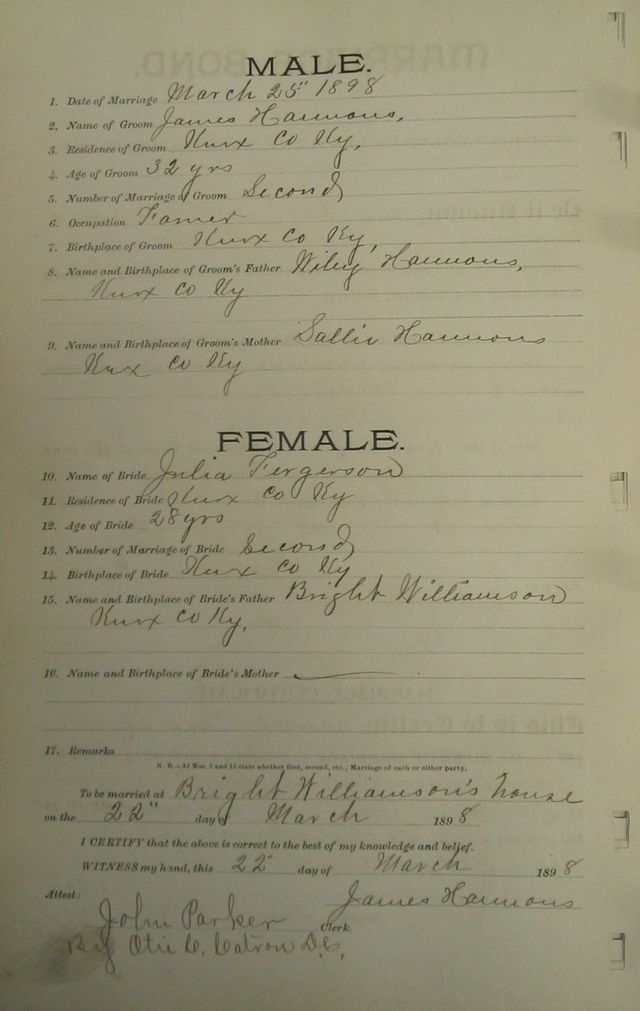 MALE.
1. Date of Marriage March 25" 1898
2. Name of Groom James Hammons,
3. Residence of Groom Knox Co Ky,
4. Age of Groom 32 yrs
5. Number of Marriage of Groom Second
6. Occupation Famer
7. Birthplace of Groom Knox Co Ky,
8. Name and Birthplace of Groom's Father Wiley Hammons,
Knox Co Ky
9. Name and Birthplace of Groom's Mother Sallie Hammons
Knox Co Ky
FEMALE.
10. Name of Bride Julia Fergerson
11. Residence of Bride Knox Co Ky
12. Age of Bride 28 yrs
13. Number of Marriage of Bride Second
14. Birthplace of Bride Knox Co Ky
15. Name and Birthplace of Bride's Father Bright Williamson
Knox Co Ky,
16. Name and Birthplace of Bride's Mother
17. Remarks
N. B.—At Nos. 5 and 13 state whether first, second, etc., Marriage of each or either party.
To be married at Bright Williamson's house
on the "22" day of March 1898
I CERTIFY that the above is correct to the best of my knowledge and belief.
WITNESS my hand, this 22" day of March 1898
James Hammons
Attest:
John Parker Clerk.
By Otis C. Catron D.C.